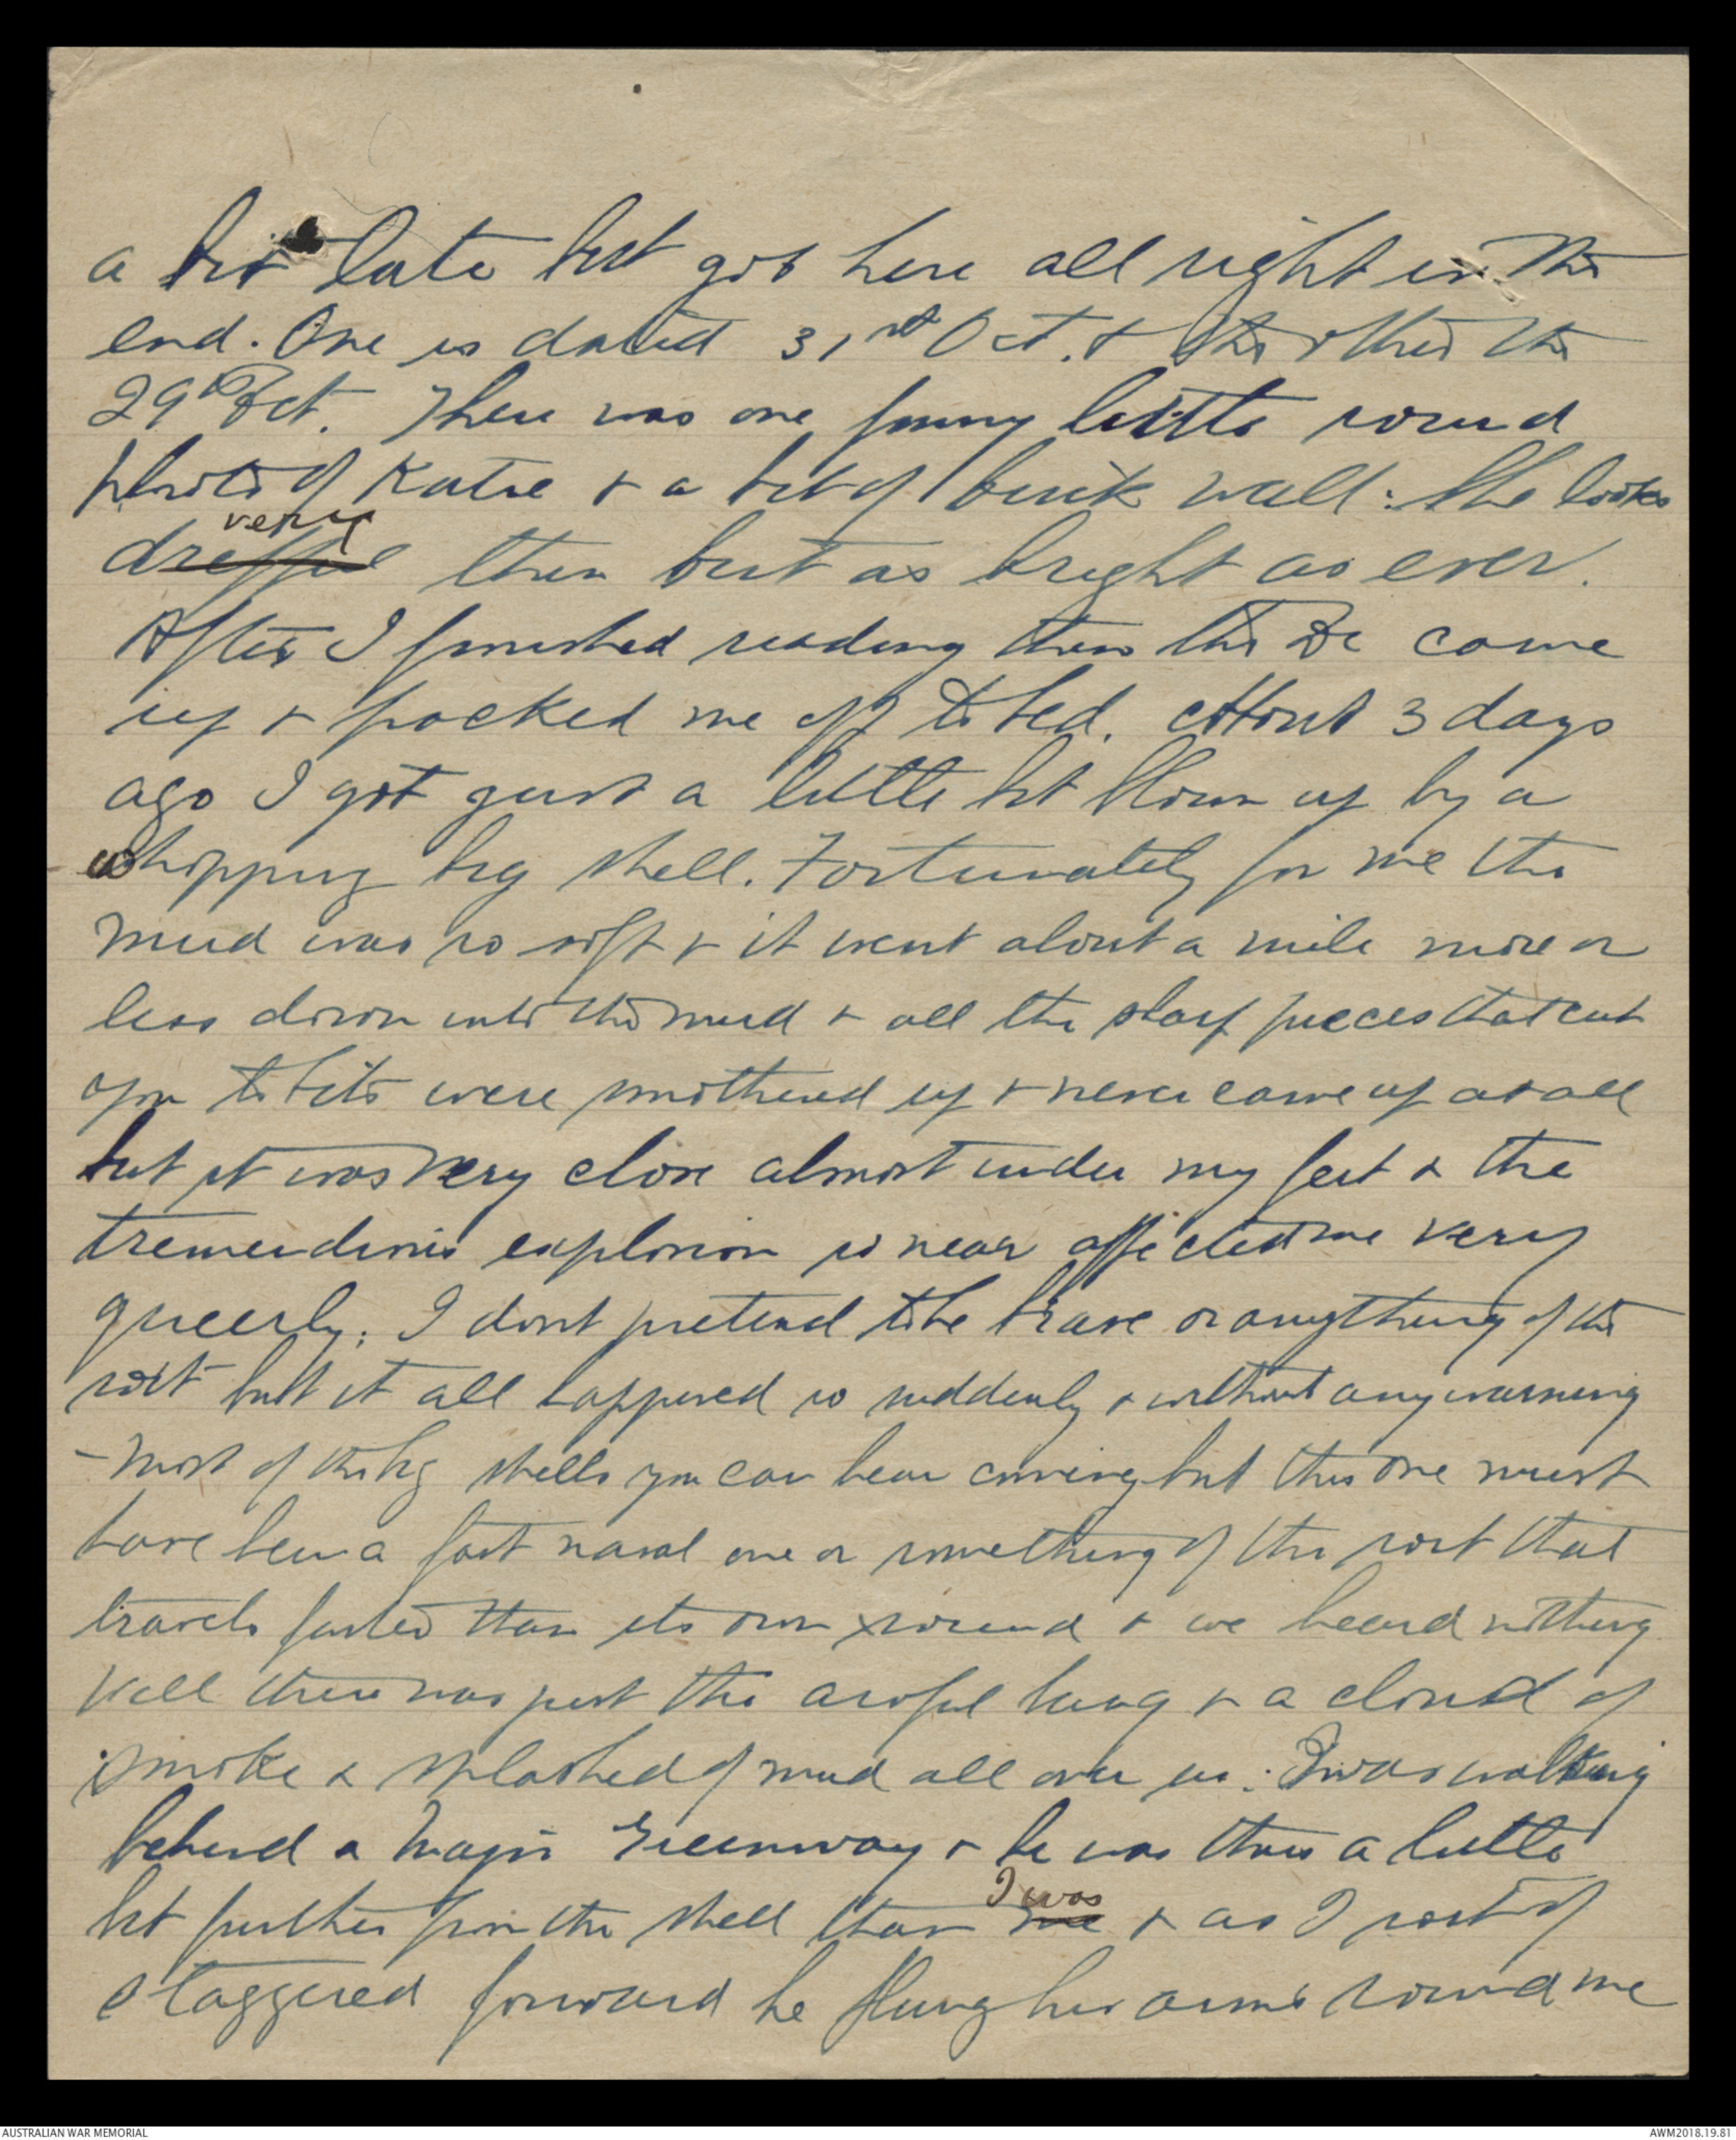 a bit late but got here all right in the
end. One is dated 31st Oct. & the other the
29th Oct. There was one funny little round
photo of Katie & a bit of brick wall. She looks
dreffful very thin but as bright as ever.
After I finished reading them the Dr came
up & packed me off to bed. About 3 days
ago I got just a little bit blown up by a
whopping big shell. Fortunately for me the
mud was so soft & it went about a mile more or
less down into the mud & all the sharp pieces that cut
you to bits were smothered up & never came up at all
but it was very close almost under my feet & the
tremendous explosion so near affected me very
queerly. I dont pretend to be brave or anything of the
sort but it all happened so suddenly & without any warning
- most of the big shells you can hear coming but this one must
have been a fast naval one or something of the sort that
travels faster than its own sound & we heard nothing
Well there was just the awful bang & a cloud of
smoke & splashed of mud all over us. I was walking
behind a Major Greenway & he was thus a little
bit further from the shell than me I was & as I sort of
staggered forward he flung his arms round me
AUSTRALIAN WAR MEMORIAL
AWM2018.19.81